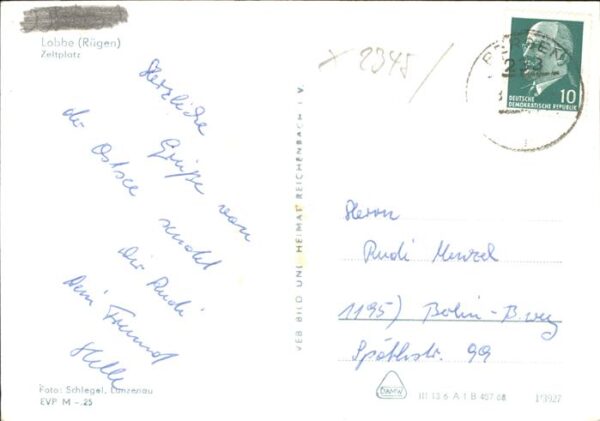 Lobbe (Rügen)
Zeltplatz
Herzliche
Grüße von
der Ostsee sendet
Dir Rudi
Dein Freund
Foto: Schlegel, Lunzenau
EVP M -.25
VEB BILD UND HEIMAT REICHENBACH I. V.
2345
DEUTSCHE
DEMOKRATISCHE REPUBLIK
10
Herrn
Rudi Menzel
1195) Berlin - B.weg
Späthstr. 99
DAMW
III 13 6 A 1 B 407 68
1/3927